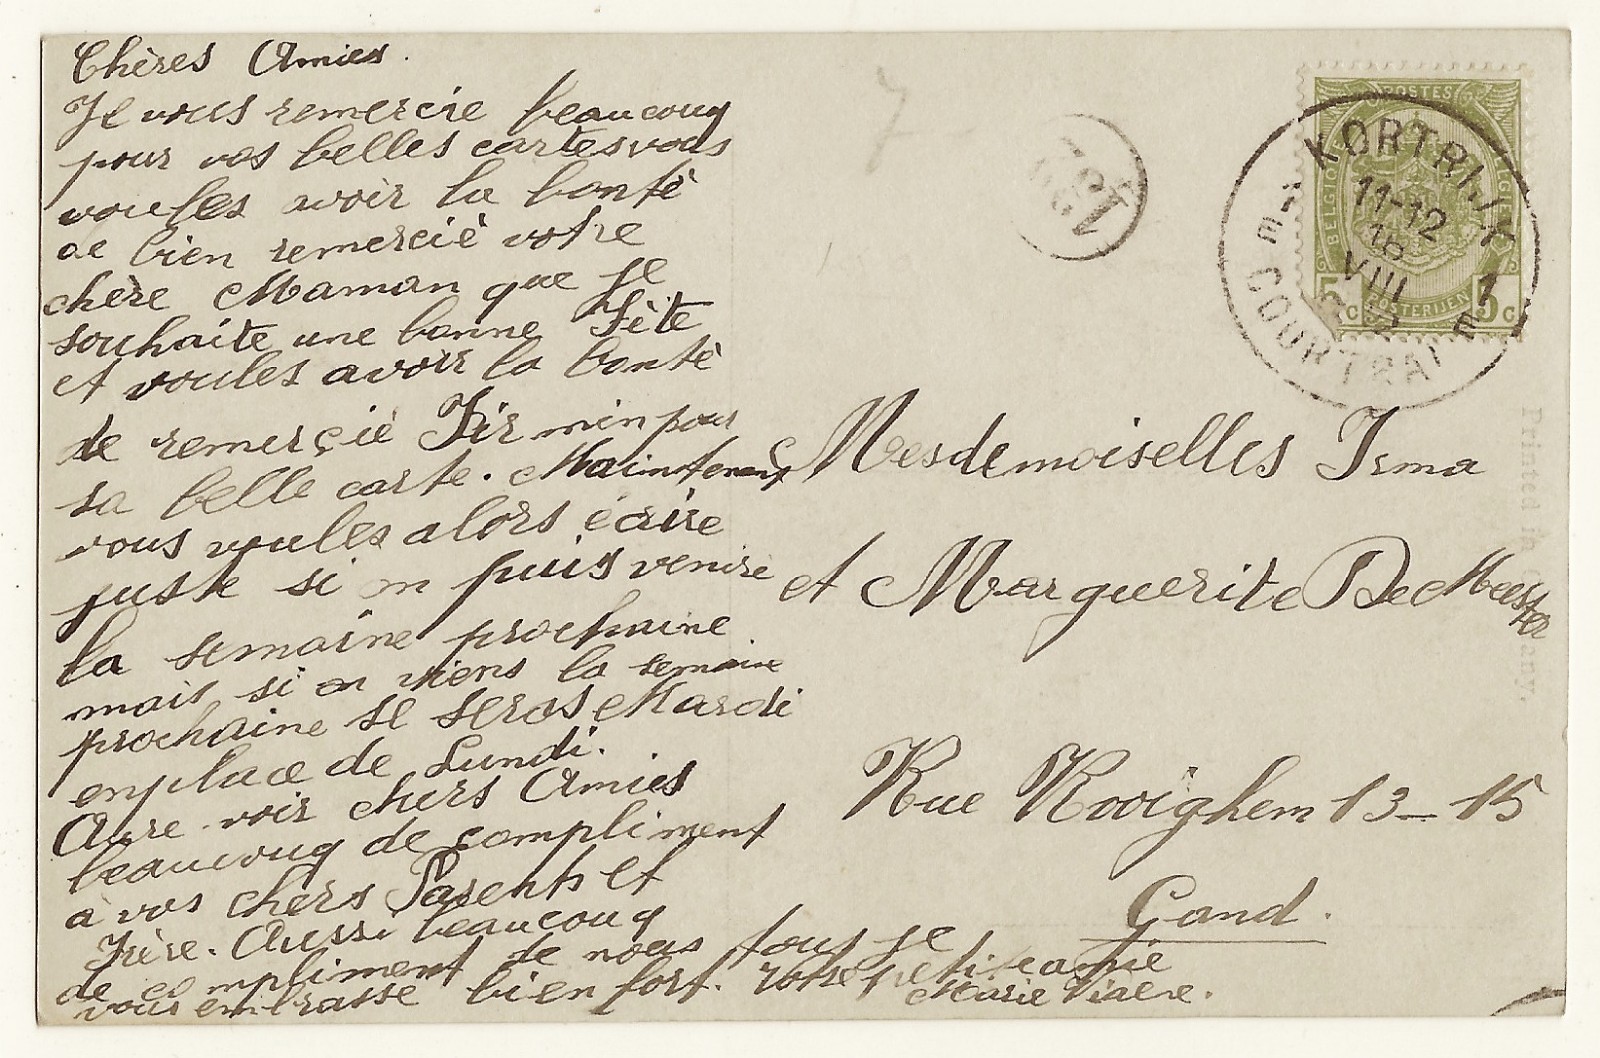 Chères Amies.
Je vous remercie beaucoup
pour vos belles cartes vous
voules avoir la bonté
de bien remercié votre
chère Maman que je
souhaite une bonne Fête
et voules avoir la bonté
de remerçié Firmin pour
sa belle carte. Maintenant
vous voules alors écrire
juste si on puis venire
la semaine prochaine
mais si on viens la semaine
prochaine se seras Mardi
en place de Lundi.
Aure-voir chers Amies
beaucoup de compliment
à vos chers Parents et
Frère. Aussi beaucoup
de compliment de nous tous je
vous embrasse bien fort. votre petite amie
Marie Viaene.
Mesdemoiselles Irma
et Marguerite De Meester
Rue Rooighem 13-15
Gand.
POSTES
BELGIQUE
BELGIË
POSTERIJEN
5c 5c
KORTRIJK 1
11-12
16
VIII
E
COURTRAI
E
7
Printed in Germany.